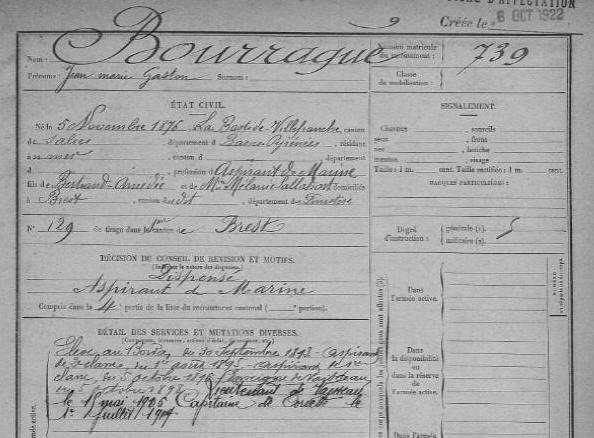 D'AFFECTATION
9 Créée le 6 OCT 1922
Nom : Bourrague
Prénoms : Jean marie Gaston Surnom :
Numéro matricule du recrutement : 739
Classe de mobilisation :
ÉTAT CIVIL.
Né le 5 Novembre 1876, La Bastide-Villefranche, canton
de Salies, département d Basses Pyrénées, résidant
en mer, canton d , département
d , profession d Aspirant de Marine
fils de Bertrand-Amédée et de Mélanie domicilié
à Brest, canton du dit, département du Finistère
N° 129 de tirage dans le canton de Brest
DÉCISION DU CONSEIL DE REVISION ET MOTIFS.
Dispensé
Aspirant de Marine
Compris dans la 4e partie de la liste du recrutement cantonal ( e portion).
DÉTAIL DES SERVICES ET MUTATIONS DIVERSES.
Elève au Borda, du 30 Septembre 1893 - aspirant
de 2e classe du 1er août 1895 - aspirant de 1re
classe du 5 octobre 1896 Enseigne de Vaisseau
du 5 octobre 1898 Lieutenant de Vaisseau
le 1 mai 1905 Capitaine de Corvette le
1er Juillet
SIGNALEMENT.
Cheveux , sourcils
yeux , front
nez , bouche
menton , visage
Taille : 1 m. cent. Taille rectifiée : 1 m. cent.
MARQUES PARTICULIÈRES :
Degré d'instruction : générale (1). 5
militaire (2).
Dans
l'armée active.
Dans
la disponibilité
ou dans la
réserve de
l'armée active.
Dans l'armée